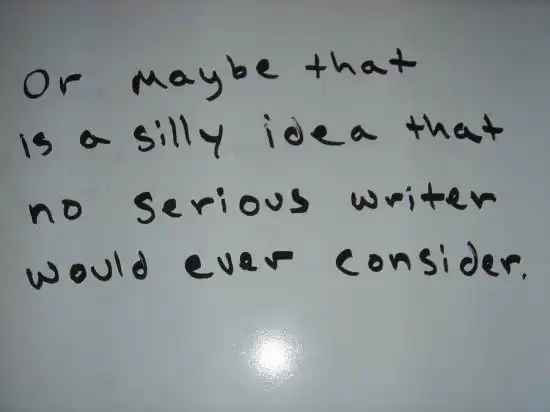 Or maybe that
is a silly idea that
no serious writer
would ever consider.